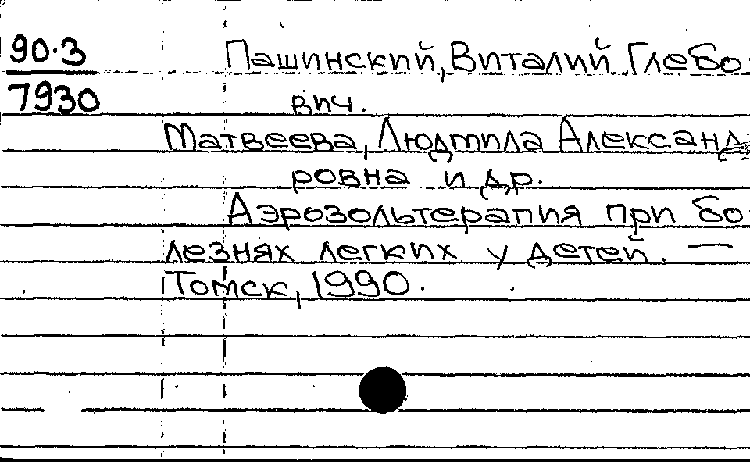 90-3 Пашинский, Виталий Глебо-
7930 вич.
Матвеева, Людмила Александ-
ровна и др.
Аэрозольтерапия при бо-
лезнях легких у детей. —
Томск, 1990.